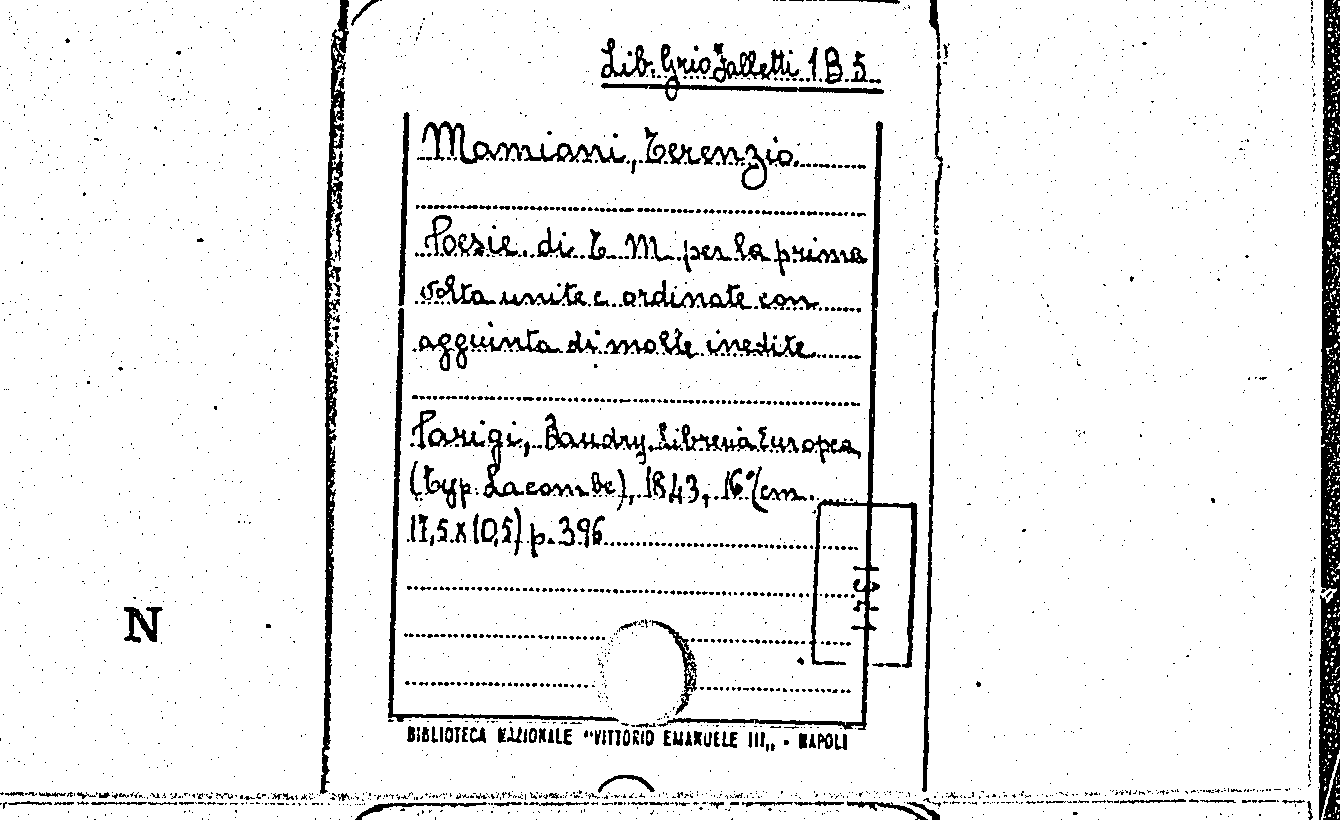 Lib. Grio Zalletti 1 B 5
Mamiani, Terenzio
Poesie di T. M. per la prima
volta unite e ordinate con
agguinta di molte inedite
Parigi, Baudry, Libreria Europea
(typ. Lacombe), 1843, 16° (cm.
17,5 x 10,5) p. 396
N
BIBLIOTECA NAZIONALE "VITTORIO EMANUELE III„ - NAPOLI